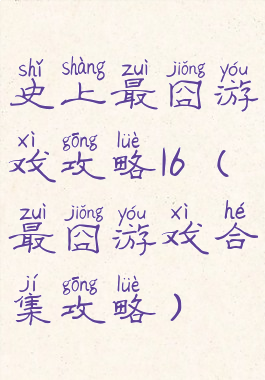 shǐ shàng zuì jiǒng yóu
史上最囧游
xì gōng lüè
戏攻略16（
zuì jiǒng yóu xì hé
最囧游戏合
jí gōng lüè
集攻略）